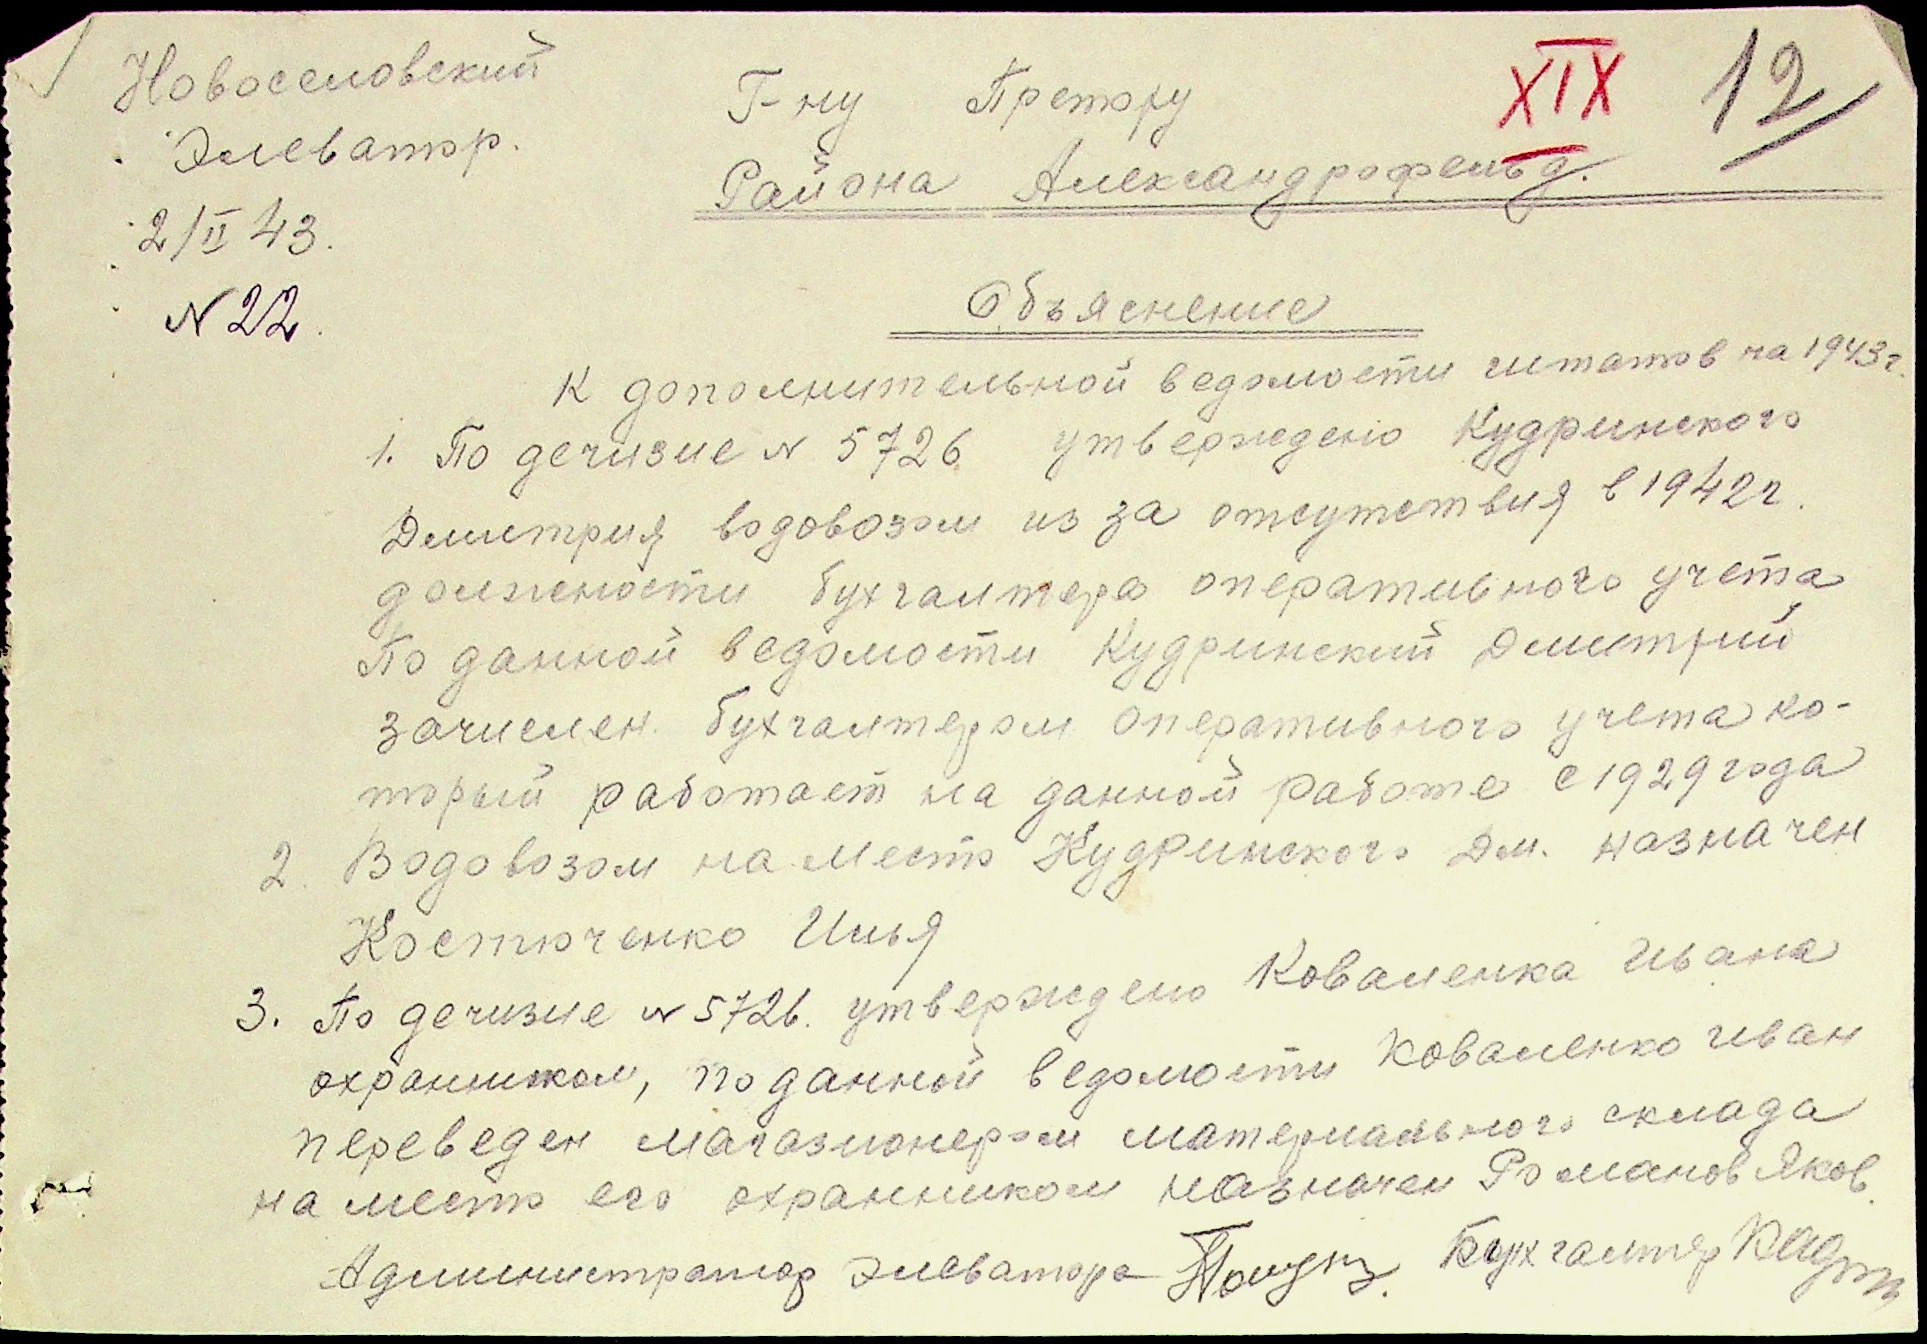 Новоселовский
Элеватор.
2/II 43.
N 22.
XIX
12
Г-ну Претору
Района Александрофельд.
Объяснение
К дополнительной ведомости штатов на 1943 г.
1. По дечизие N 5726 утверждено Кудринского
Дмитрия водовозом из за отсутствия в 1942 г.
должности бухгалтера оперативного учета
По данной ведомости Кудринский Дмитрий
зачислен бухгалтером оперативного учета ко-
торый работает на данной работе с 1929 года
2. Водовозом на место Кудринского Дм. назначен
Костюченко Илья
3. По дечизие N 5726. утверждено Коваленка Ивана
охранником, по данной ведомости Коваленко Иван
переведен магазионером материального склада
на место его охранником назначен Романов Яков.
Администратор Элеватора Бухгалтер